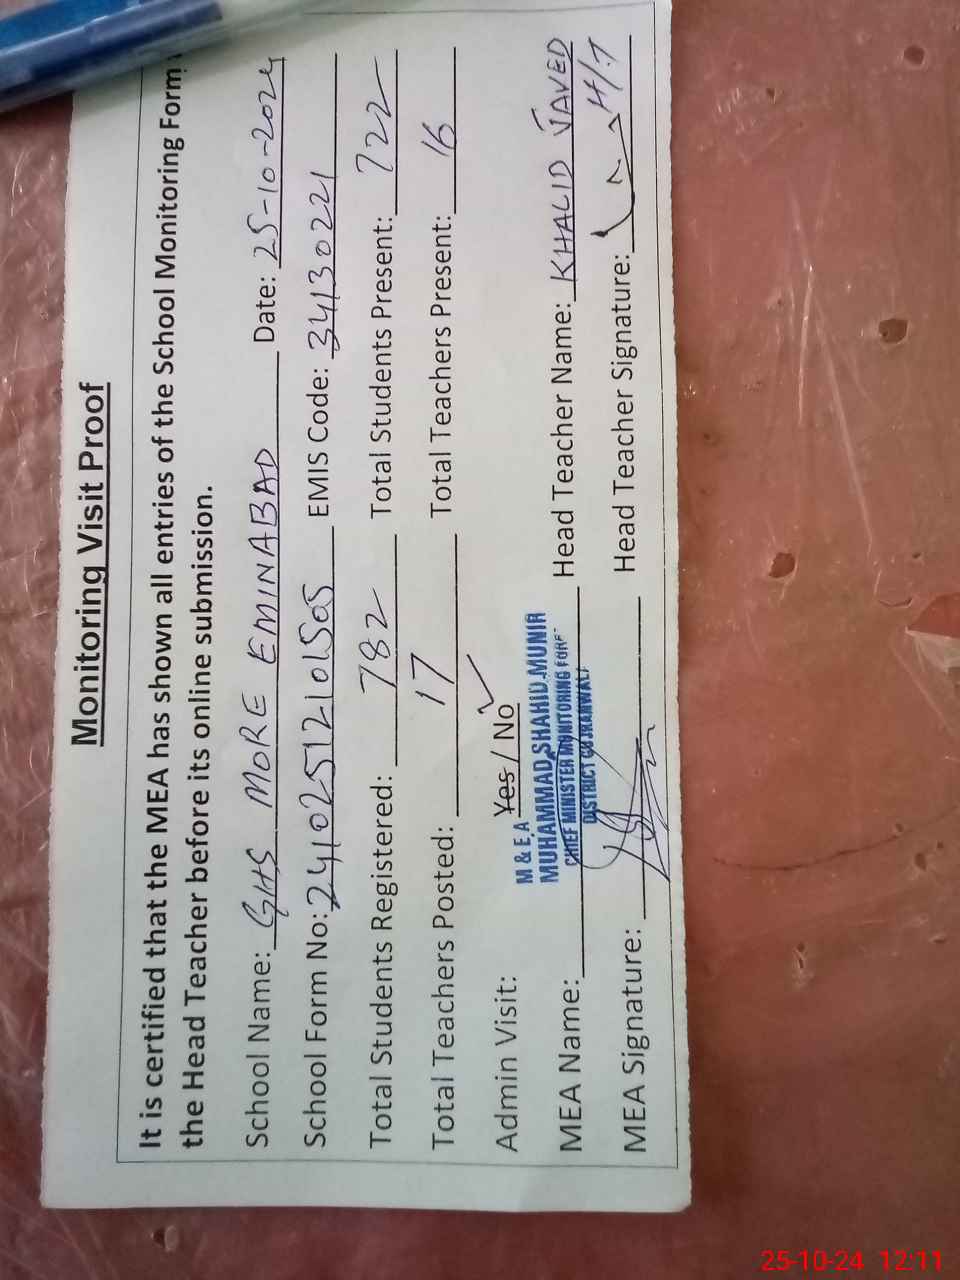 Monitoring Visit Proof
It is certified that the MEA has shown all entries of the School Monitoring Form
the Head Teacher before its online submission.
School Name: GHS MORE EMINABAD Date: 25-10-2024
School Form No: 2410251210505 EMIS Code: 34130221
Total Students Registered: 782 Total Students Present: 722
Total Teachers Posted: 17 Total Teachers Present: 16
Admin Visit: Yes / No ✓
M & E.A
MUHAMMAD SHAHID MUNIR
CHIEF MINISTER MONITORING FORE
DISTRICT GUJRANWALA
MEA Name: Head Teacher Name: KHALID JAVED
MEA Signature: Head Teacher Signature: H/T
25-10-24 12:11